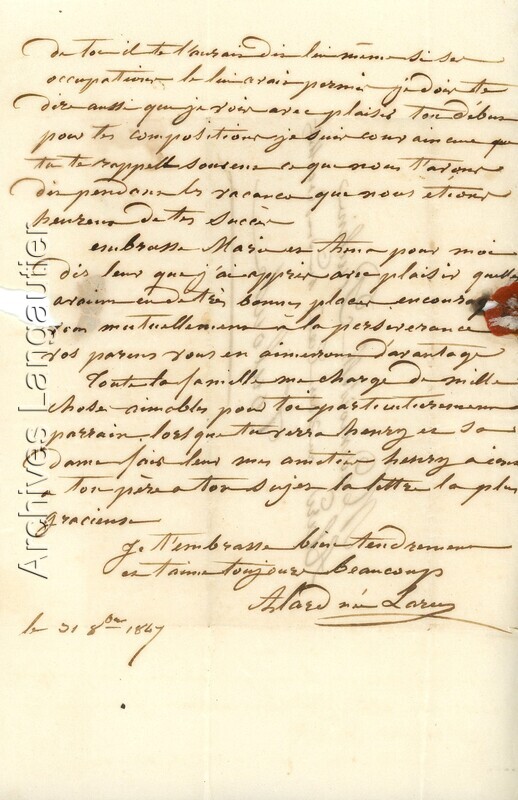 de toi il te l'aurait dit lui même si ses
occupations le lui avait permis je dois te
dire aussi que je vois avec plaisir ton début
pour tes compositions je suis convaincue que
tu te rappelle souvent ce que nous t'avons
dis pendant les vacances que nous étions
heureux de tes succès
embrasse Marie et Anna pour moi
dis leur que j'ai appris avec plaisir quelles
avaient eu de très bonnes places encoura
mutuellement à la perséverance
vos parens vous en aimeront davantage
Toute la famille me charge de mille
choses aimables pour toi particulièrement
parrain. lorsque tu verra henry et sa
dame fais leur mes amitiés henry a écrit
a ton père a ton sujet la lettre la plus
gracieuse
Je t'embrasse bien tendrement
et t'aime toujours beaucoup
Alard née
le 31 8bre 1847
Archives Langautier